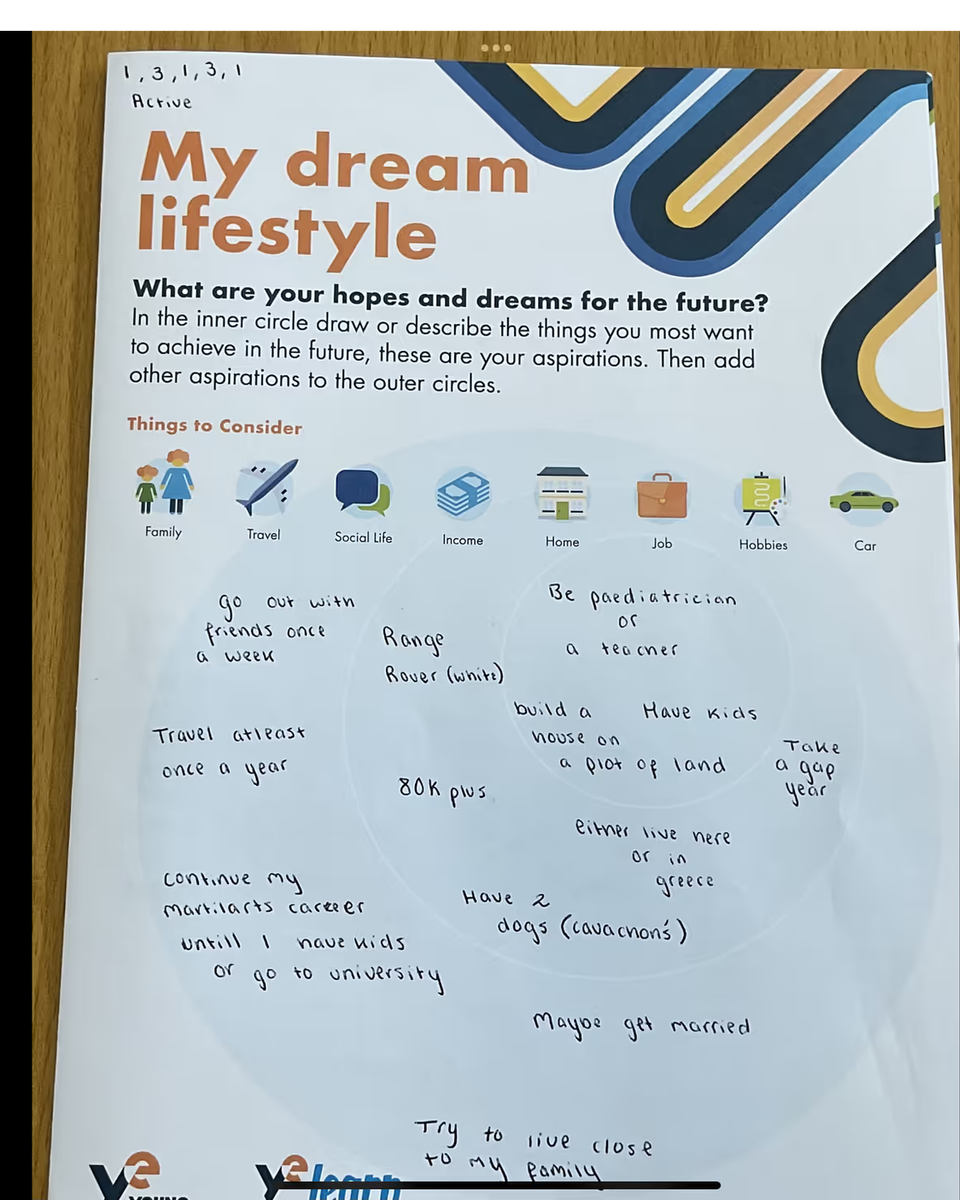 1, 3, 1, 3, 1
Active
My dream
lifestyle
What are your hopes and dreams for the future?
In the inner circle draw or describe the things you most want
to achieve in the future, these are your aspirations. Then add
other aspirations to the outer circles.
Things to Consider
Family
Travel
Social Life
Income
Home
Job
Hobbies
Car
go out with
friends once
a week
Range
Rover (white)
Be paediatrician
or
a teacher
build a
house on
a plot of land
Have kids
Take
a gap
year
Travel atleast
once a year
80K plus
either live here
or in
greece
continue my
martilarts career
untill I have kids
or go to university
Have 2
dogs (cavachon's)
Maybe get married
Try to live close
to my family
ye
YOUNG
ye learn